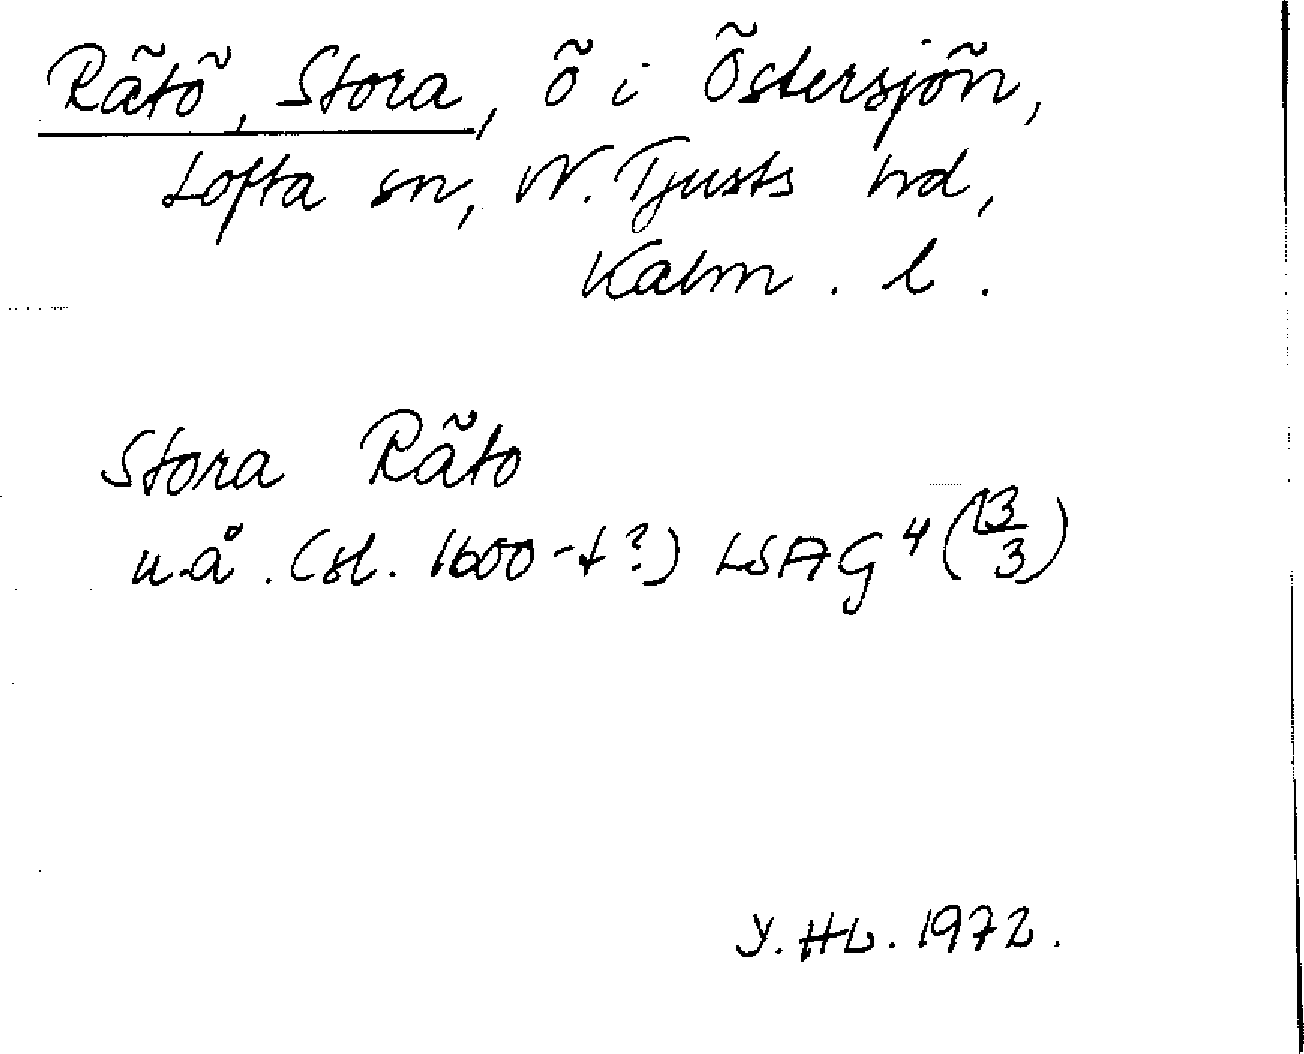 Rätö, Stora, ö i Östersjön,
Lofta sn, N. Tjusts hd,
Kalm. l.
Stora Räto
u.å. (sl. 1600-t?) LSA G⁴ (13/3)
Y. HL. 1972.